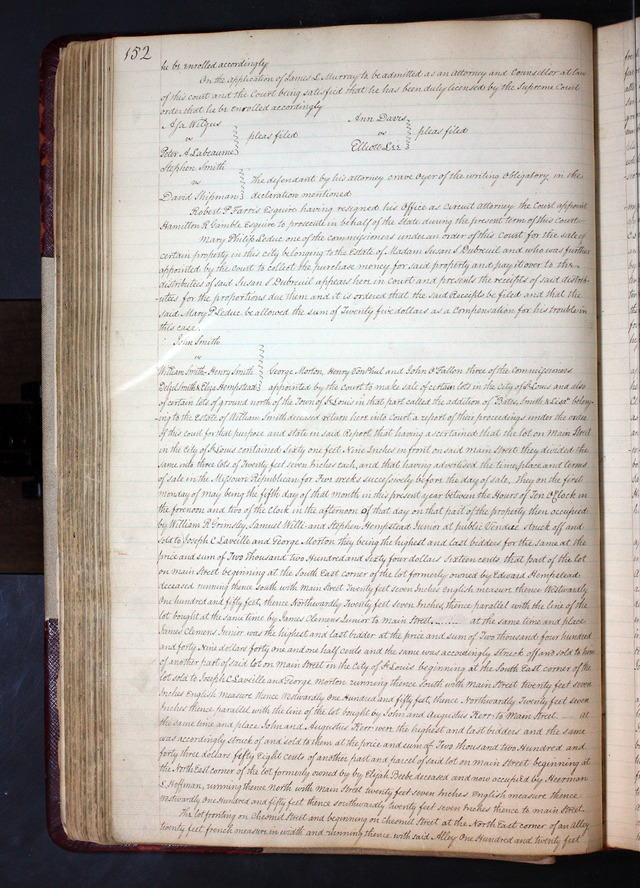 152
he be enrolled accordingly
On the application of James L Murray to be admitted as an attorney and Counsellor at law
of this court and the Court being satisfied that he has been duly licensed by the Supreme Court
order that he be enrolled accordingly
Asa Wilgus
vs } pleas filed
Peter A Labeaume
Ann Davis
vs } pleas filed
Elliott Lee
Stephen Smith
vs } The defendant by his attorney crave Oyer of the writing Obligatory in the
David Shipman } declaration mentioned
Robert P Farris Esquire having resigned his Office as Circuit Attorney the Court appoint
Hamilton R Gamble Esquire to prosecute in behalf of the State during the present term of this Court
Mary Philip Leduc one of the commissioners under an order of this Court for the sale of
certain property in this city belonging to the Estate of Madam Susan S Dubreuil and who was further
appointed by the court to collect the purchase money for said property and pay it over to the
distributees of said Susan S Dubreuil appears here in court and presents the receipts of said distrib-
utees for the proportions due them and it is ordered that the said Receipts be filed and that the
said Mary P Leduc be allowed the sum of Twenty five dollars as a Compensation for his trouble in
this case.
John Smith
vs
William Smith Henry Smith } George Morton, Henry Von Phul and John O'Fallon three of the commissioners
& Eliza Hempstead } appointed by the Court to make sale of certain lots in the City of St Louis and also
of certain lots of ground north of the Town of St Louis in that part called the addition of Bates, Smith & belong-
ing to the Estate of William Smith deceased return here into Court a report of their proceedings under the order
of this court for that purpose and state in said Report that having ascertained that the lot on Main Street
in the City of St Louis contained Sixty one feet Nine Inches in front on said Main Street they divided the
same into three lots of Twenty feet seven Inches each, and that having advertised the time, place and terms
of sale in the Missouri Republican for Two weeks successively before the day of sale, They on the first
monday of may being the fifth day of that month in this present year between the Hours of Ten O'Clock in
the forenoon and two of the Clock in the afternoon of that day on that part of the property then occupied
by William R Grimsley, Samuel Willi and Stephen Hempstead Junior at public Vendue struck off and
sold to Joseph C Laville and George Morton they being the highest and last bidders for the same at the
price and sum of Two Thousand two Hundred and Sixty four dollars Sixteen cents that part of the lot
on main Street beginning at the South East corner of the lot formerly owned by Edward Hempstead
deceased running thence South with Main Street Twenty feet seven Inches English measure thence Westwardly
One hundred and fifty feet, thence Northwardly Twenty feet seven Inches, thence parallel with the line of the
lot bought at the same time by James Clemens Junior to Main Street at the same time and place
James Clemens Junior was the highest and last bidder at the price and sum of Two thousand four hundred
and forty Nine dollars forty one and one half cents and the same was accordingly struck off and sold to him
of another part of said lot on Main Street in the City of St Louis beginning at the South East corner of the
lot sold to Joseph C Laville and George Morton running thence South with Main Street twenty feet seven
Inches English measure thence Westwardly One Hundred and fifty feet, thence Northwardly Twenty feet seven
Inches thence parallel with the line of the lot bought by John and Augustus Kerr to Main Street at
the same time and place John and Augustus Kerr were the highest and last bidders and the same
was accordingly struck off and sold to them at the price and sum of Two thousand two Hundred and
forty three dollars fifty Eight cents of another part and parcel of said lot on main Street beginning at
the North East corner of the lot formerly owned by by Elijah Beebe deceased and now occupied by
L Hoffman, running thence North with Main Street twenty feet seven Inches English measure thence
Westwardly One Hundred and fifty feet thence southwardly twenty feet seven Inches thence to main Street.
The lot fronting on Chesnut Street and beginning on chesnut Street at the North East corner of an alley
twenty feet french measure in width and running thence with said Alley One Hundred and twenty feet